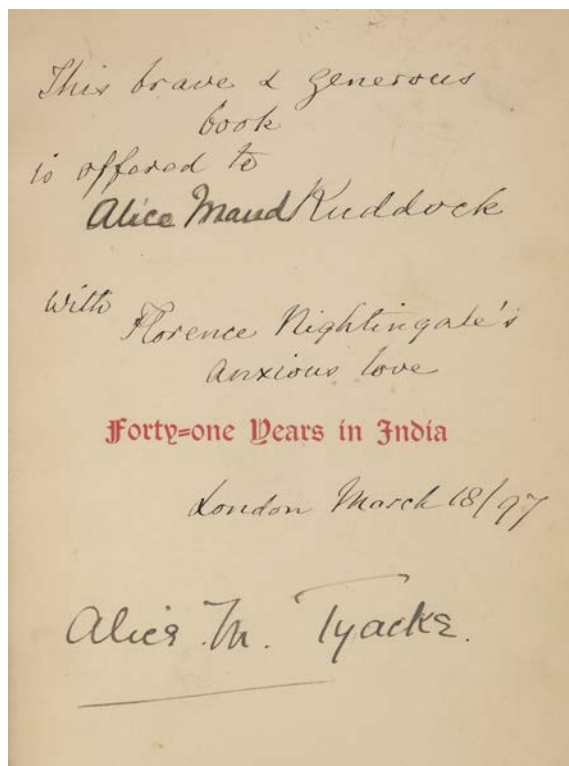 This brave & generous
book
is offered to
Alice Maud Ruddock
With
Florence Nightingale's
anxious love
Forty=one Years in India
London March 18/97
Alice M. Tyacke.